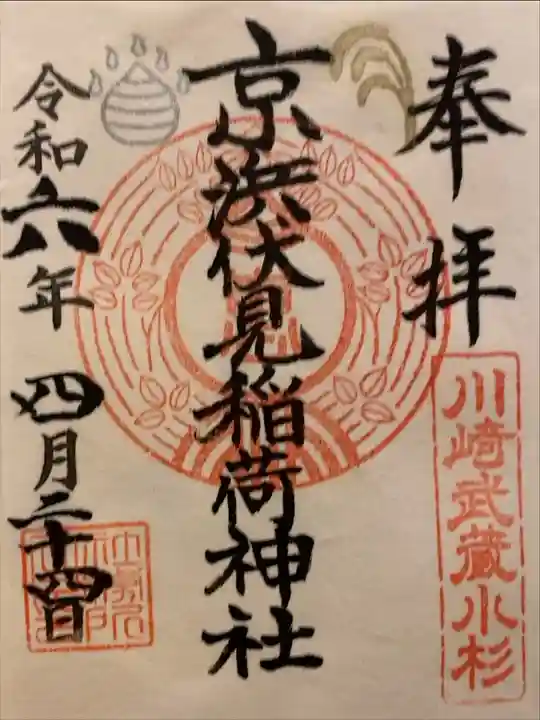 奉拝
川崎武蔵小杉
京浜伏見稲荷神社
令和六年四月二十四日